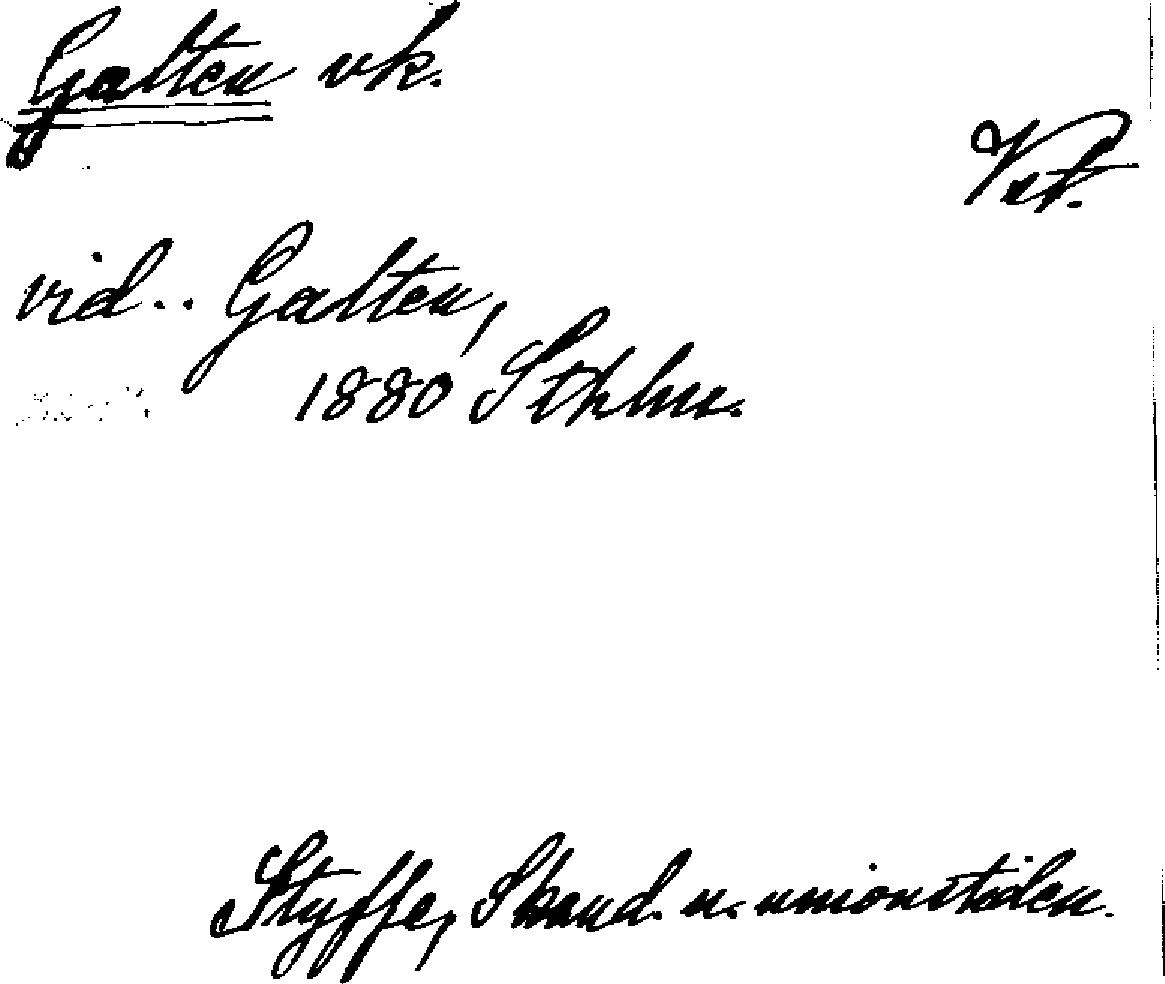 Galten vk.
Vst.
vid.. Galten,
1880 Sthlm.
Styffe, Skand. u. unionstiden.